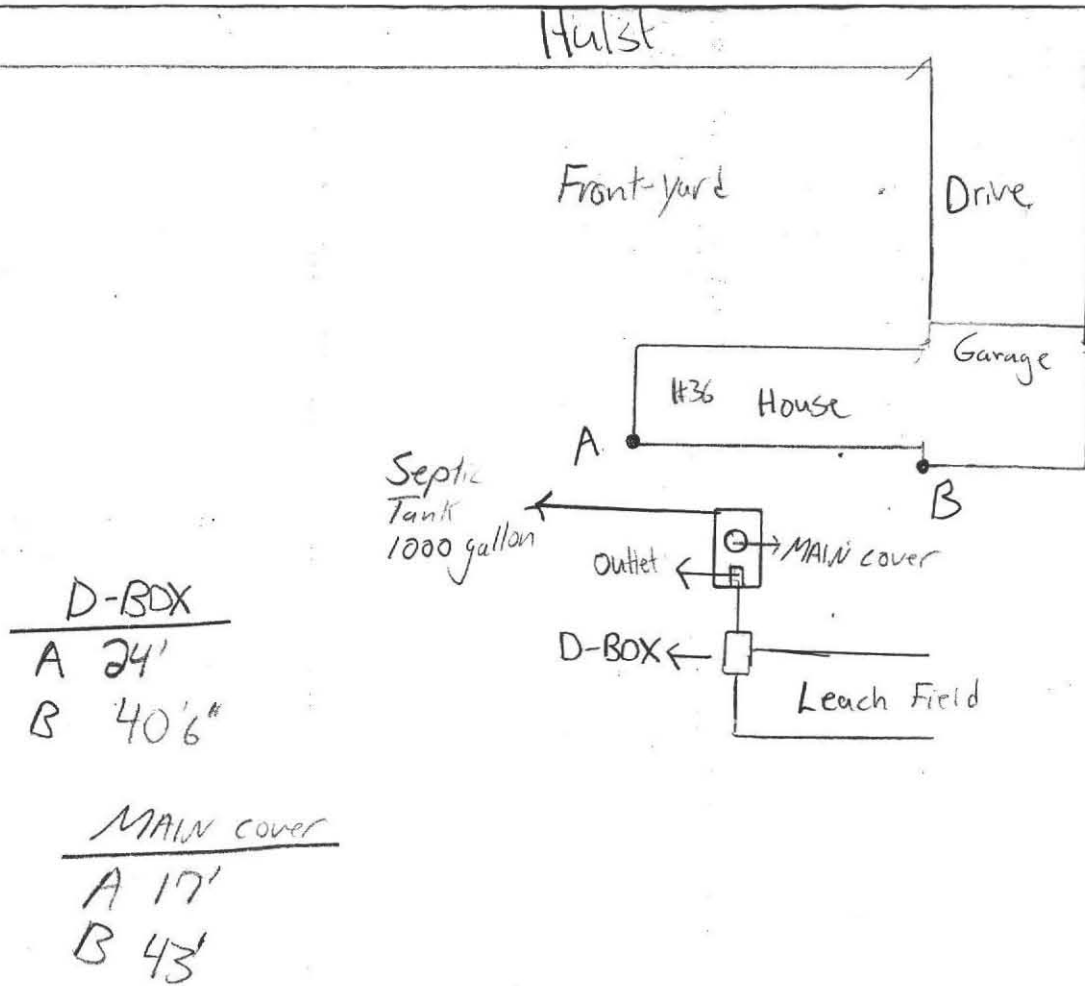 Hulst
Front-yard
Drive
Garage
#36 House
A
B
Septic
Tank
1000 gallon
MAIN cover
Outlet
D-BOX
Leach Field
D-BOX
A 24'
B 40'6"
MAIN cover
A 17'
B 43'